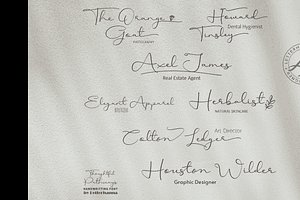 The Orange
Goat
PHOTOGRAPHY
Howard
Dental Hygienist
Tinsley
Axel James
Real Estate Agent
Elegant Apparel
Herbalist
NATURAL SKINCARE
Colton Ledger
Art Director
Houston Wilder
Graphic Designer
Thoughtful
Pathways
HANDWRITING FONT